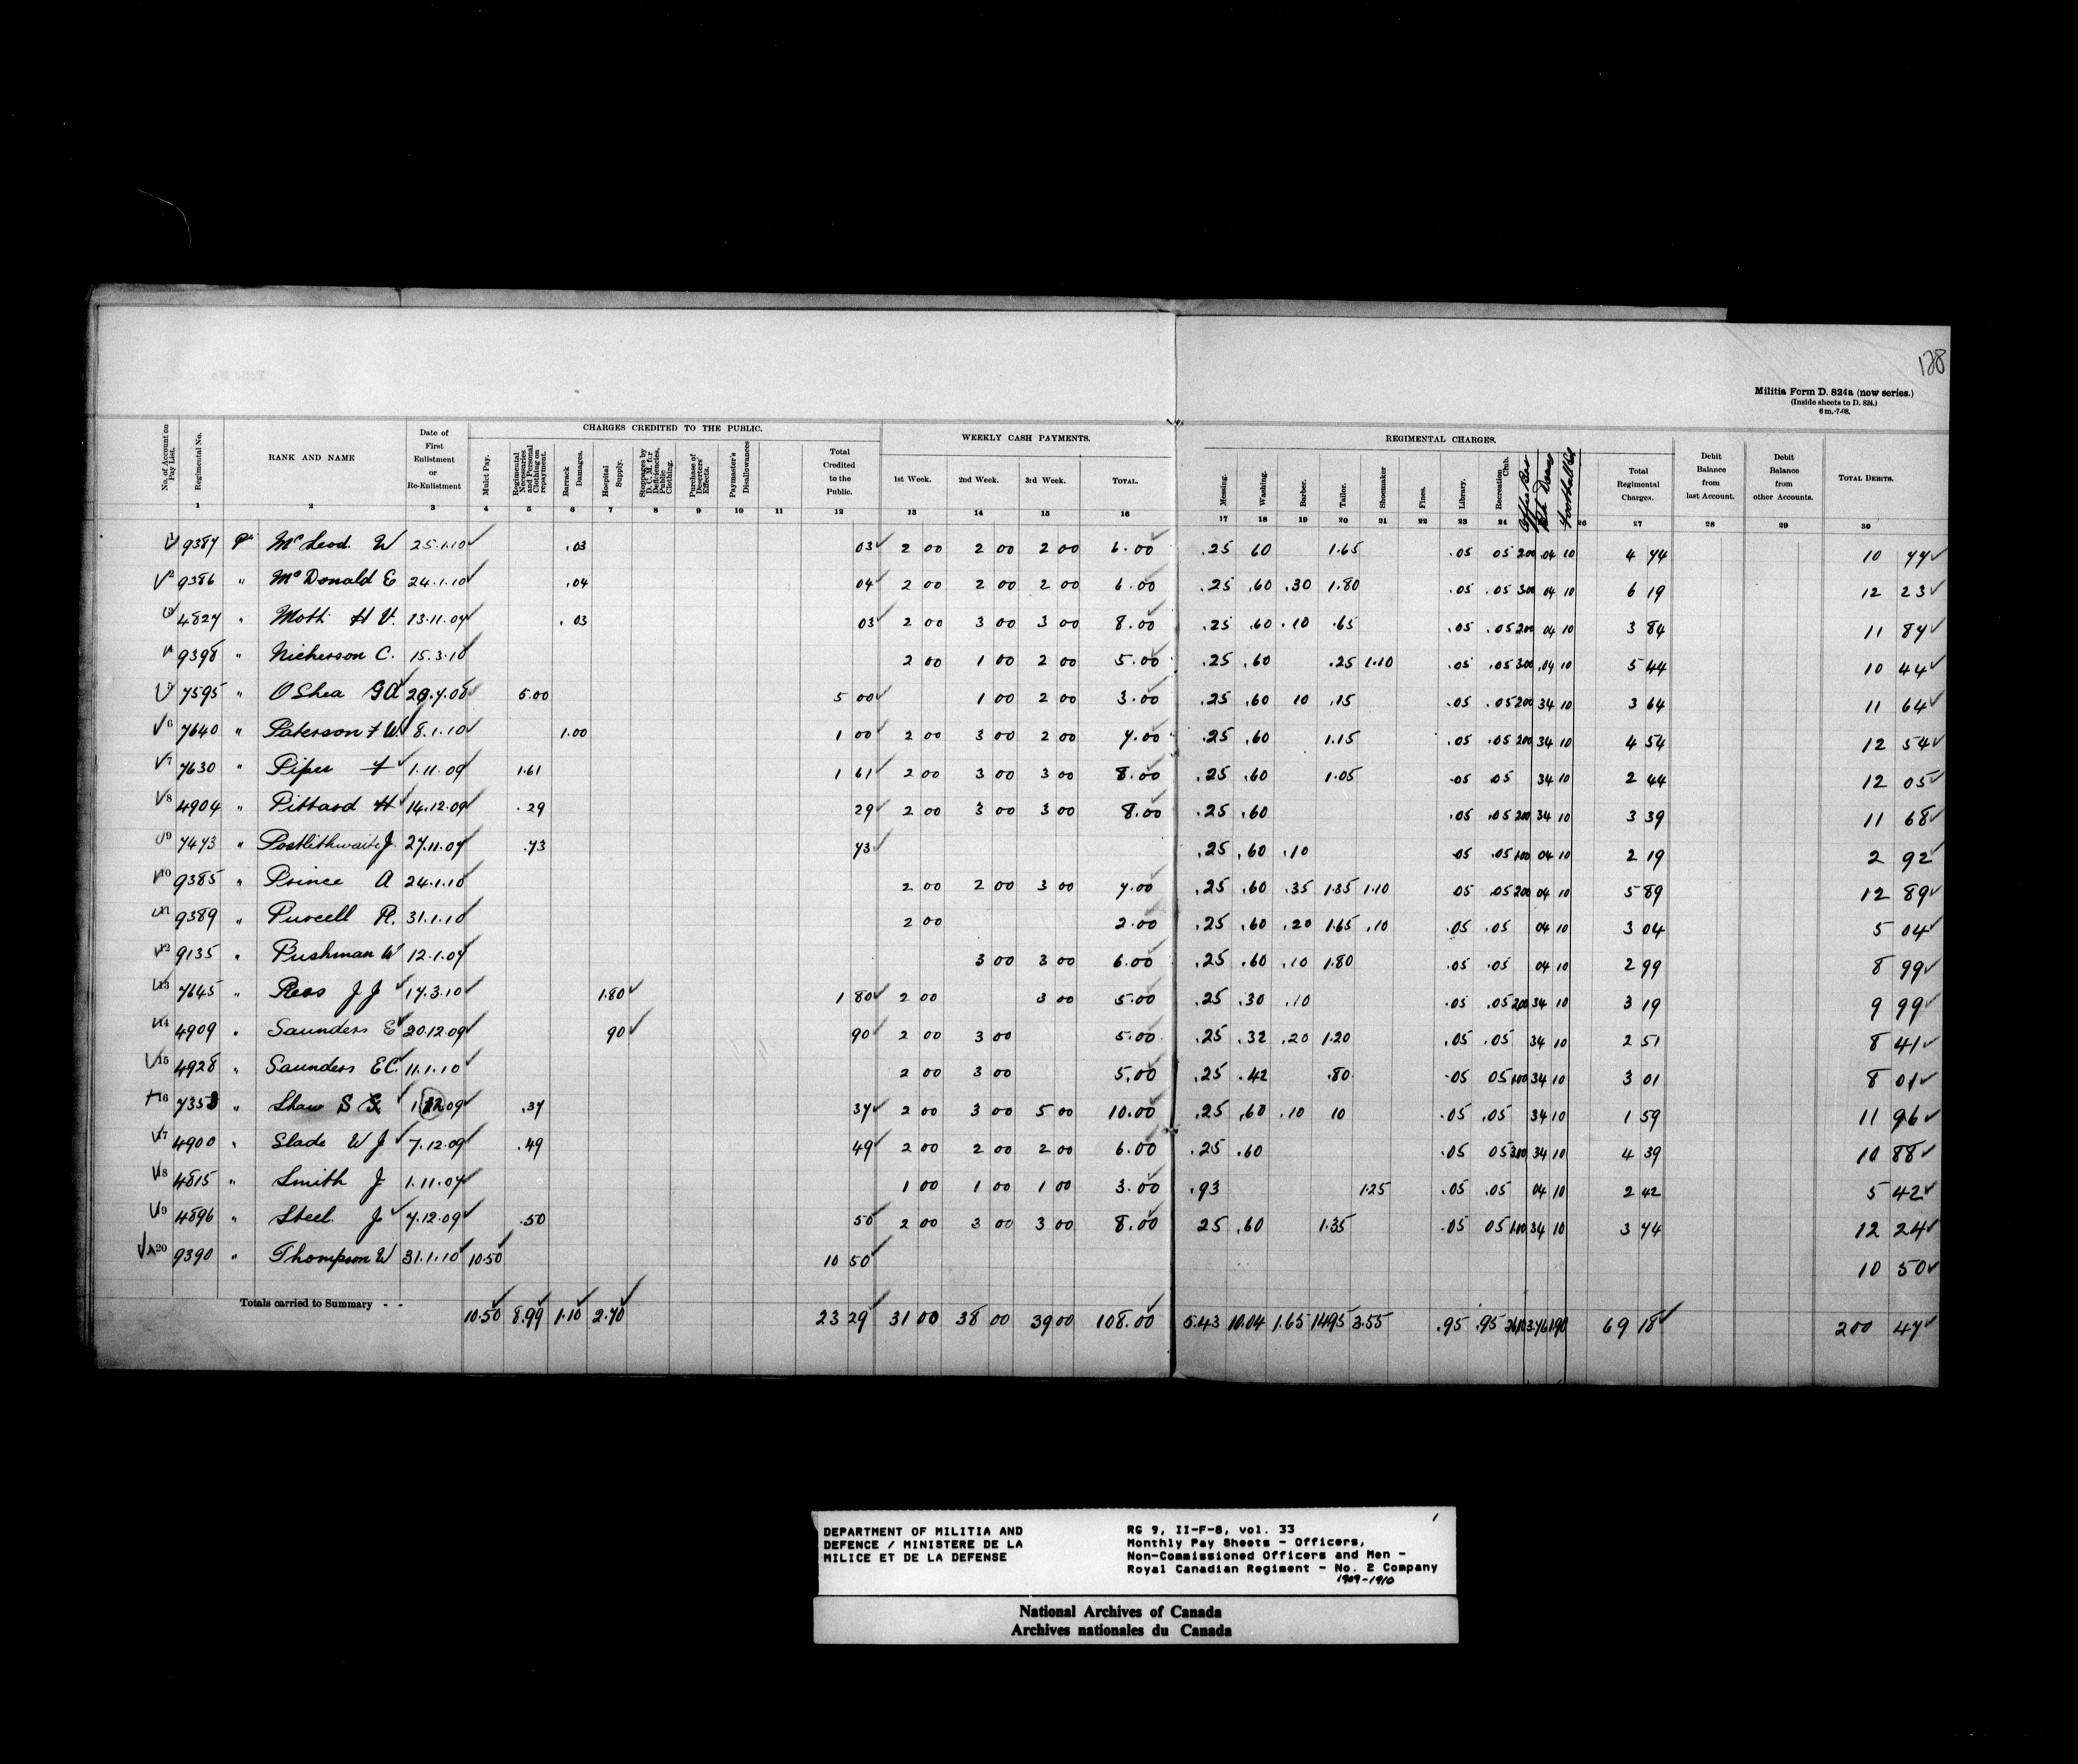 128
Militia Form D. 824a (new series.)
(Inside sheets to D. 824.)
6 m.-7-08.
No. of Account on Pay List. Regimental No. RANK AND NAME Date of First Enlistment or Re-Enlistment CHARGES CREDITED TO THE PUBLIC. WEEKLY CASH PAYMENTS. REGIMENTAL CHARGES. Debit Balance from last Account. Debit Balance from other Accounts. TOTAL DEBITS.
Mulct Pay. Regimental Necessaries and Personal Clothing on repayment. Barrack Damages. Hospital Supply. Stoppages by D. C. M. for Deficiencies, Public Clothing. Purchase of Deserters' Effects. Paymaster's Disallowances Total Credited to the Public. 1st Week. 2nd Week. 3rd Week. TOTAL. Messing. Washing. Barber. Tailor. Shoemaker Fines. Library. Recreation Club. Total Regimental Charges.
1 2 3 4 5 6 7 8 9 10 11 12 13 14 15 16 17 18 19 20 21 22 23 24 26 27 28 29 30
1 9387 Pte McLeod W 25.1.10 .03 03 2 00 2 00 2 00 6.00 .25 60 1.65 .05 05 200 .04 10 4 74 10 77
2 9386 " McDonald E 24.1.10 .04 04 2 00 2 00 2 00 6.00 .25 .60 .30 1.80 .05 .05 300 04 10 6 19 12 23
3 4827 " Moth H V. 13.11.07 .03 03 2 00 3 00 3 00 8.00 .25 .60 .10 .65 .05 .05 200 04 10 3 84 11 87
9398 " Nickerson C. 15.3.10 2 00 1 00 2 00 5.00 .25 .60 .25 1.10 .05 .05 300 .04 10 5 44 10 44
5 7595 " O Shea G A 29.7.08 5.00 5 00 1 00 2 00 3.00 .25 .60 10 .15 .05 .05 200 34 10 3 64 11 64
6 7640 " Paterson F W 8.1.10 1.00 1 00 2 00 3 00 2 00 7.00 .25 .60 1.15 .05 .05 200 34 10 4 54 12 54
7 7630 " Piper F 1.11.09 1.61 1 61 2 00 3 00 3 00 8.00 .25 .60 1.05 .05 .05 34 10 2 44 12 05
8 4904 " Pittard H 14.12.09 .29 29 2 00 3 00 3 00 8.00 .25 .60 .05 .05 200 34 10 3 39 11 68
9 7473 " Postlethwaite J 27.11.07 .73 73 .25 .60 .10 05 .05 100 04 10 2 19 2 92
10 9385 " Prince A 24.1.10 2 00 2 00 3 00 7.00 .25 .60 .35 1.35 1.10 05 .05 200 04 10 5 89 12 89
11 9389 " Purcell R. 31.1.10 2 00 2.00 .25 .60 .20 1.65 .10 .05 .05 04 10 3 04 5 04
12 9135 " Pushman W 12.1.07 3 00 3 00 6.00 .25 .60 .10 1.80 .05 .05 04 10 2 99 8 99
13 7645 " Rees J J 17.3.10 1.80 1 80 2 00 3 00 5.00 .25 .30 .10 .05 .05 200 34 10 3 19 9 99
14 4909 " Saunders E 20.12.09 90 90 2 00 3 00 5.00 .25 .32 .20 1.20 .05 .05 34 10 2 51 8 41
15 4928 " Saunders E C. 11.1.10 2 00 3 00 5.00 .25 .42 .80 .05 05 100 34 10 3 01 8 01
16 7353 " Shaw S G 1.12.09 .37 37 2 00 3 00 5 00 10.00 .25 .60 .10 10 .05 .05 34 10 1 59 11 96
17 4900 " Slade W J 7.12.09 .49 49 2 00 2 00 2 00 6.00 .25 .60 .05 05 300 34 10 4 39 10 88
18 4815 " Smith J 1.11.07 1 00 1 00 1 00 3.00 .93 1.25 .05 .05 04 10 2 42 5 42
19 4896 " Steel J 7.12.09 .50 50 2 00 3 00 3 00 8.00 25 .60 1.35 .05 05 100 34 10 3 74 12 24
20 9390 " Thompson W 31.1.10 10.50 10 50 10 50
Totals carried to Summary - - 10.50 8.99 1.10 2.70 23 29 31 00 38 00 39 00 108.00 5.43 10.04 1.65 14.95 3.55 .95 .95 3.76 1.90 69 18 200 47
DEPARTMENT OF MILITIA AND
DEFENCE / MINISTERE DE LA
MILICE ET DE LA DEFENSE
RG 9, II-F-8, vol. 33
Monthly Pay Sheets - Officers,
Non-Commissioned Officers and Men -
Royal Canadian Regiment - No. 2 Company
1909-1910
National Archives of Canada
Archives nationales du Canada